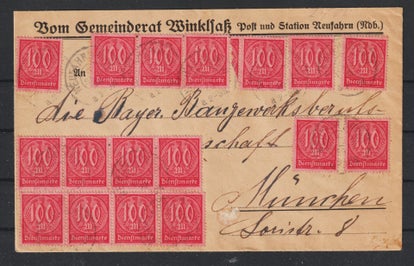 Vom Gemeinderat Winklsaß Post und Station Neufahrn (Ndb.)
100 100 100 100 100 100 100
M M M M M M M
Dienstmarke Dienstmarke Dienstmarke Dienstmarke Dienstmarke Dienstmarke Dienstmarke
An
die Bayer. Baugewerksberufs-
100 100
M M
Dienstmarke Dienstmarke
100 100 100 100
M M M M
Dienstmarke Dienstmarke Dienstmarke Dienstmarke
schaft
München
100 100 100 100
M M M M
Dienstmarke Dienstmarke Dienstmarke Dienstmarke
Loristr. 8